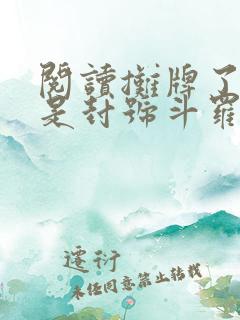 閱讀攤牌了
是封號斗羅
遷衍
未经同意禁止转载